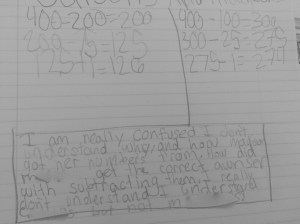 400-200=200
400-100=300
200-75=125
300-25=275
125+1=126
275-1=274
I am really confused I dont
understand why and how
got her numbers from. How did
get the correct awnser
with subtracting them. I really
dont understand I understand
but not